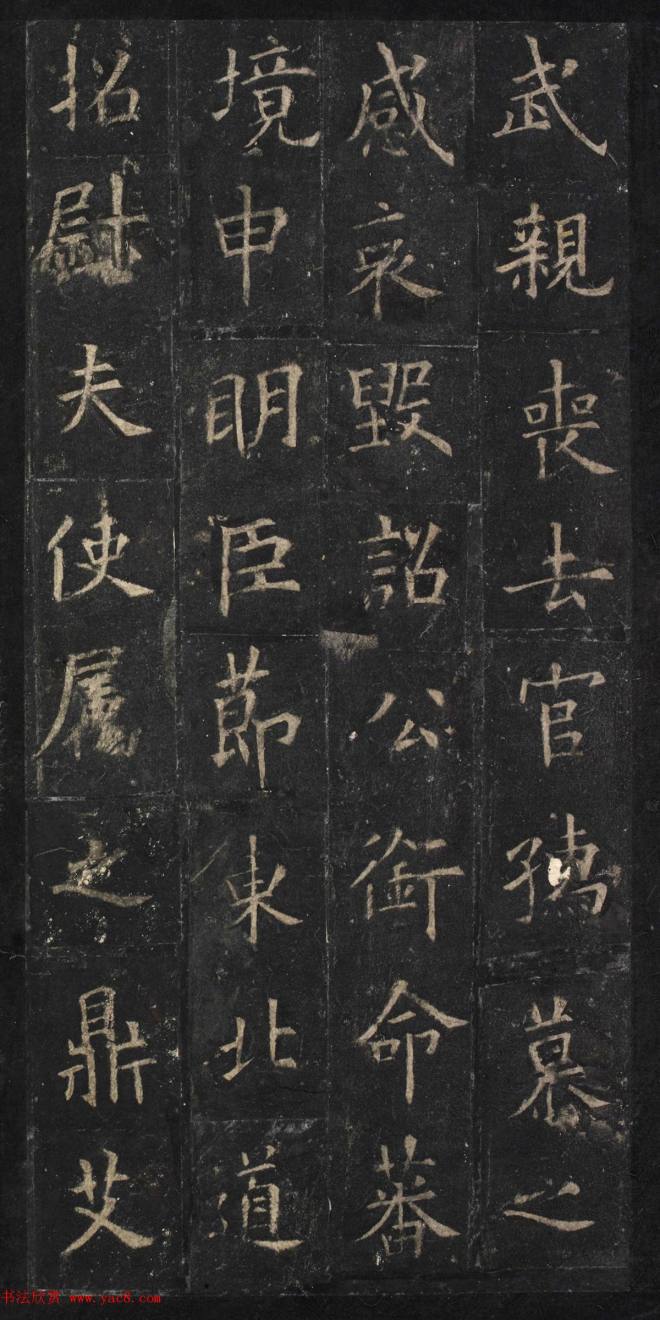 武親喪去官孺慕之
感哀毀詔公銜命蕃
境申明臣節東北道
招尉夫使属之鼎艾
书法欣赏 www.yac8.com